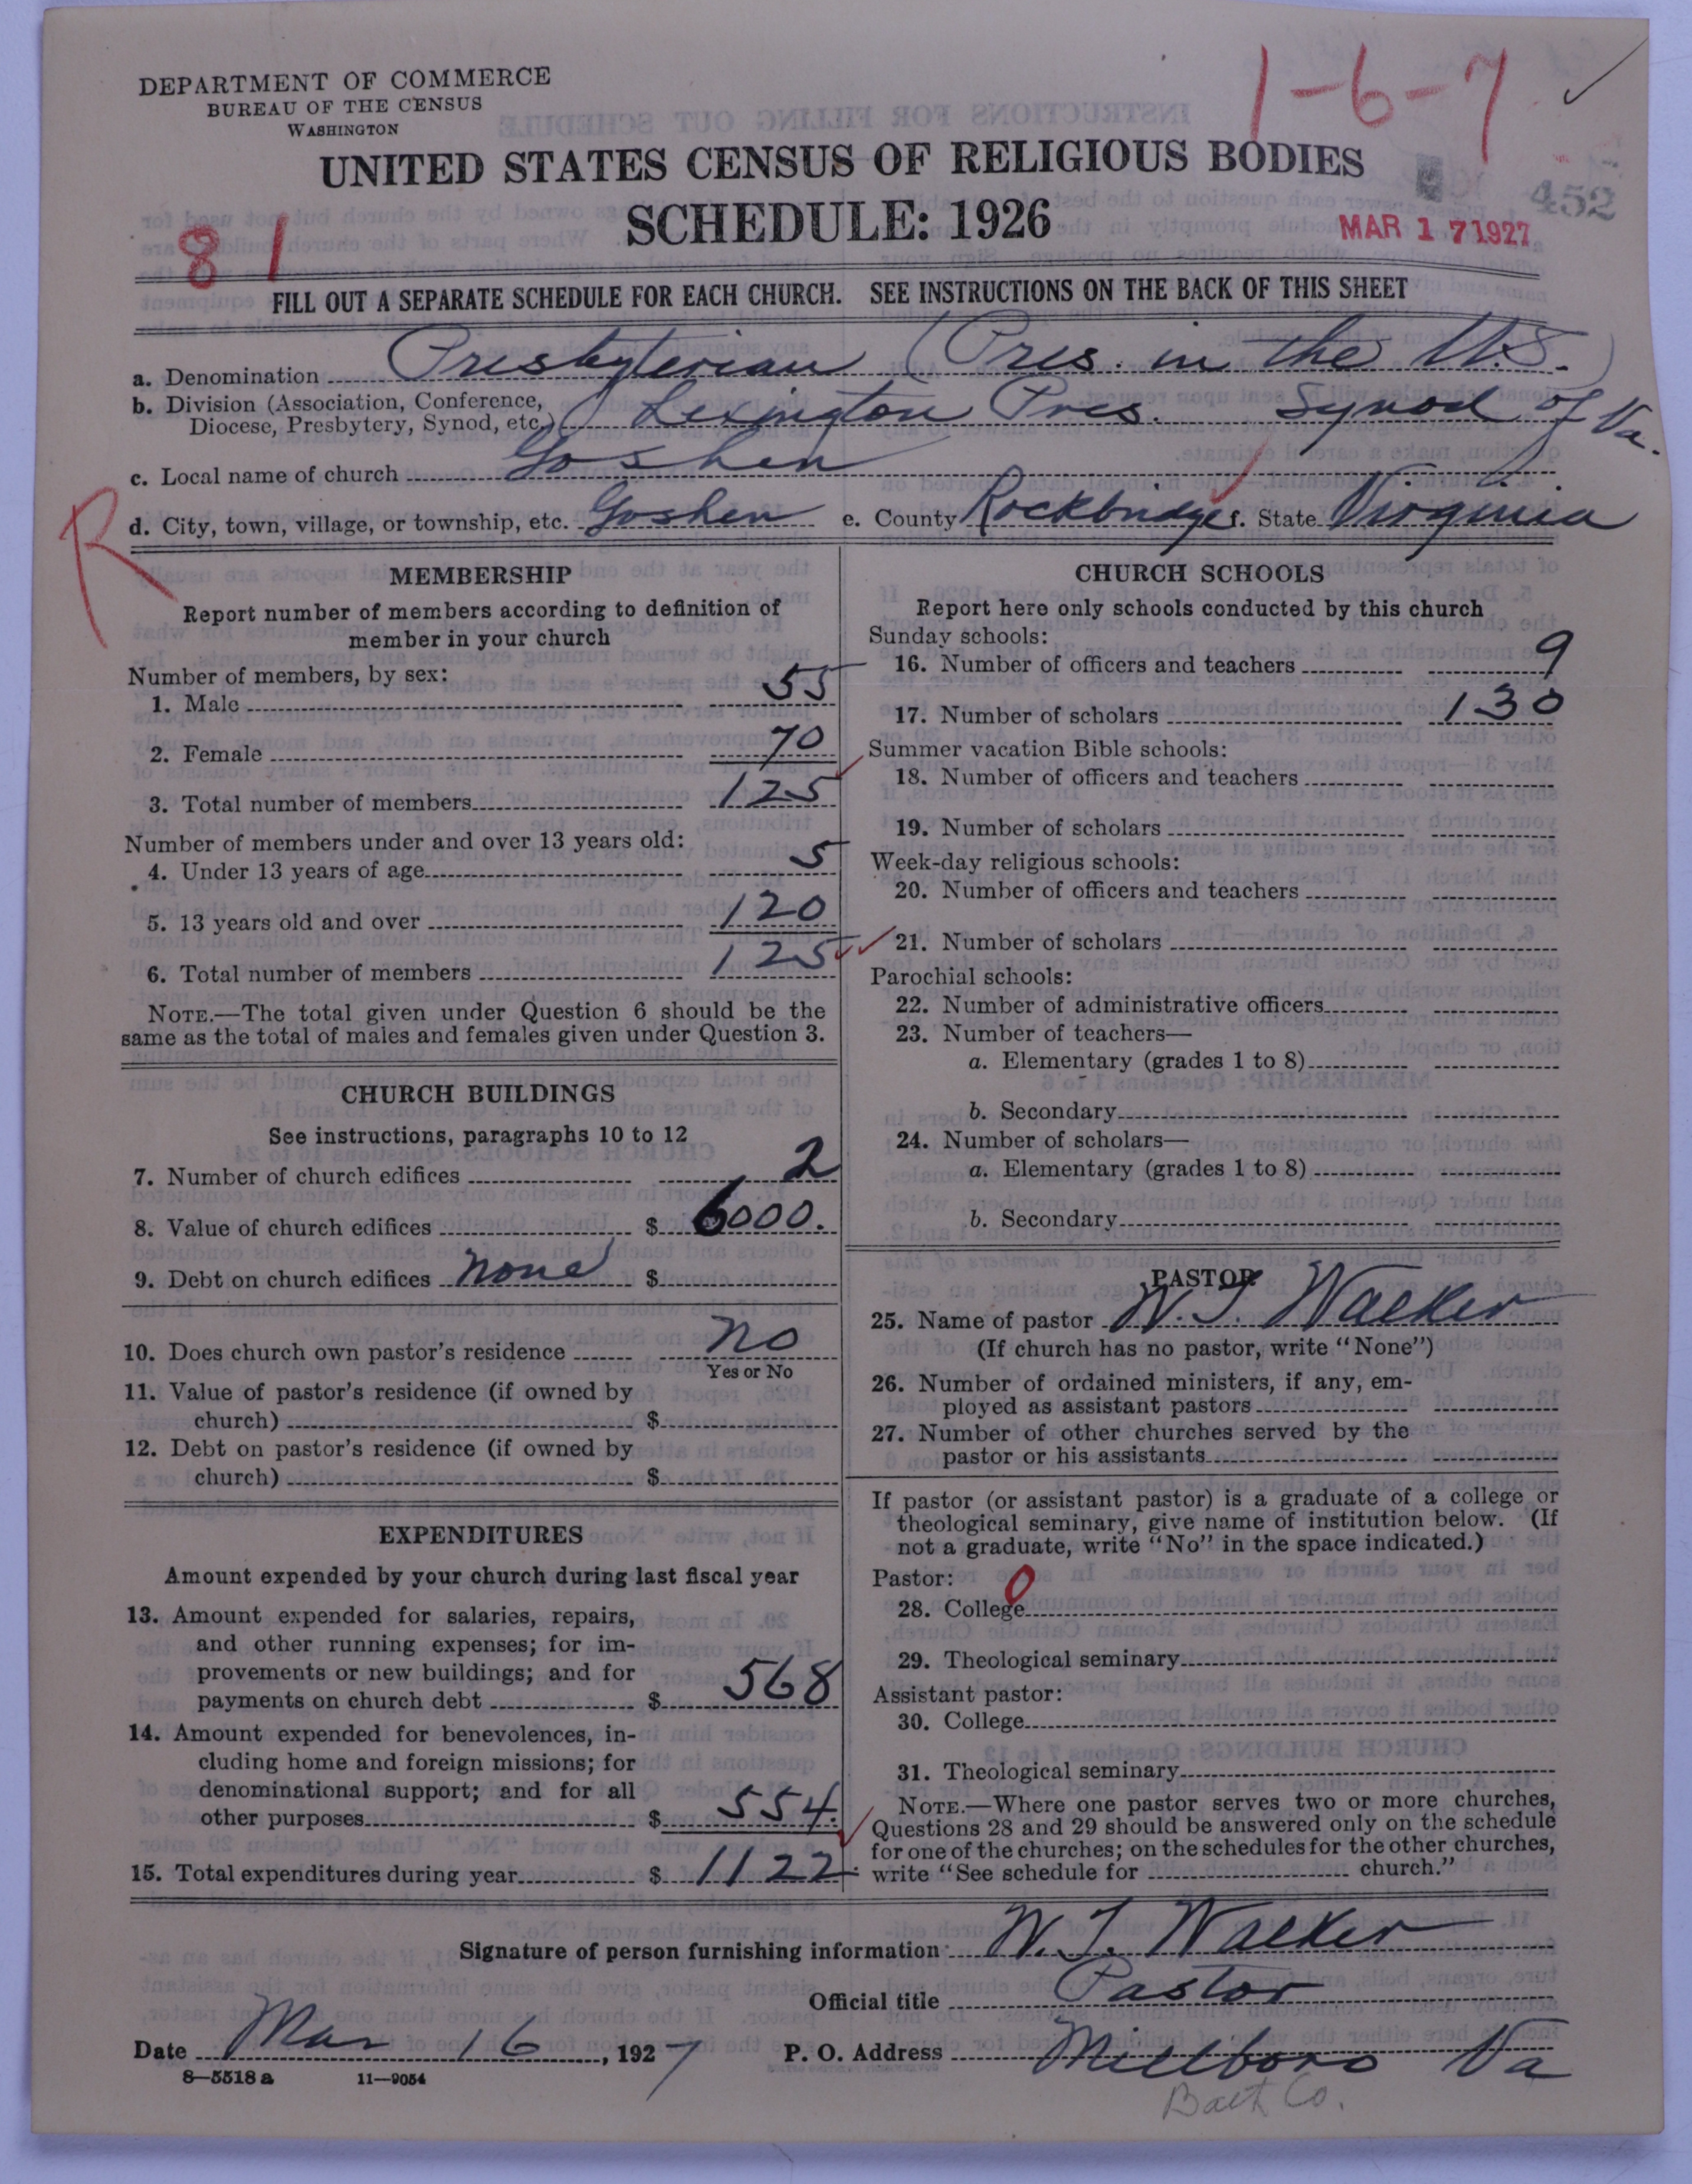 1-6-7
DEPARTMENT OF COMMERCE
BUREAU OF THE CENSUS
WASHINGTON
UNITED STATES CENSUS OF RELIGIOUS BODIES
SCHEDULE: 1926
452
MAR 17 1927
8 1
FILL OUT A SEPARATE SCHEDULE FOR EACH CHURCH. SEE INSTRUCTIONS ON THE BACK OF THIS SHEET
a. Denomination Presbyterian (Pres. in the U.S.)
b. Division (Association, Conference,
Diocese, Presbytery, Synod, etc.) Lexington Pres. Synod of Va.
c. Local name of church Goshen
d. City, town, village, or township, etc. Goshen e. County Rockbridge f. State Virginia
R
MEMBERSHIP
Report number of members according to definition of
member in your church
Number of members, by sex:
1. Male 55
2. Female 70
3. Total number of members 125
Number of members under and over 13 years old:
4. Under 13 years of age 5
5. 13 years old and over 120
6. Total number of members 125
NOTE.—The total given under Question 6 should be the
same as the total of males and females given under Question 3.
CHURCH BUILDINGS
See instructions, paragraphs 10 to 12
7. Number of church edifices 2
8. Value of church edifices $ 6000.
9. Debt on church edifices none $
10. Does church own pastor's residence no
Yes or No
11. Value of pastor's residence (if owned by
church) $
12. Debt on pastor's residence (if owned by
church) $
EXPENDITURES
Amount expended by your church during last fiscal year
13. Amount expended for salaries, repairs,
and other running expenses; for im-
provements or new buildings; and for
payments on church debt $ 568
14. Amount expended for benevolences, in-
cluding home and foreign missions; for
denominational support; and for all
other purposes $ 554.
15. Total expenditures during year $ 1122.
CHURCH SCHOOLS
Report here only schools conducted by this church
Sunday schools:
16. Number of officers and teachers 9
17. Number of scholars 130
Summer vacation Bible schools:
18. Number of officers and teachers
19. Number of scholars
Week-day religious schools:
20. Number of officers and teachers
21. Number of scholars
Parochial schools:
22. Number of administrative officers
23. Number of teachers—
a. Elementary (grades 1 to 8)
b. Secondary
24. Number of scholars—
a. Elementary (grades 1 to 8)
b. Secondary
PASTOR
25. Name of pastor W. T. Walker
(If church has no pastor, write "None")
26. Number of ordained ministers, if any, em-
ployed as assistant pastors
27. Number of other churches served by the
pastor or his assistants
If pastor (or assistant pastor) is a graduate of a college or
theological seminary, give name of institution below. (If
not a graduate, write "No" in the space indicated.)
Pastor: 0
28. College
29. Theological seminary
Assistant pastor:
30. College
31. Theological seminary
NOTE.—Where one pastor serves two or more churches,
Questions 28 and 29 should be answered only on the schedule
for one of the churches; on the schedules for the other churches,
write "See schedule for church."
Signature of person furnishing information W. T. Walker
Official title Pastor
Date Mar 16, 1927 P. O. Address Millboro Va
8—5518 a 11—9054
Bath Co.